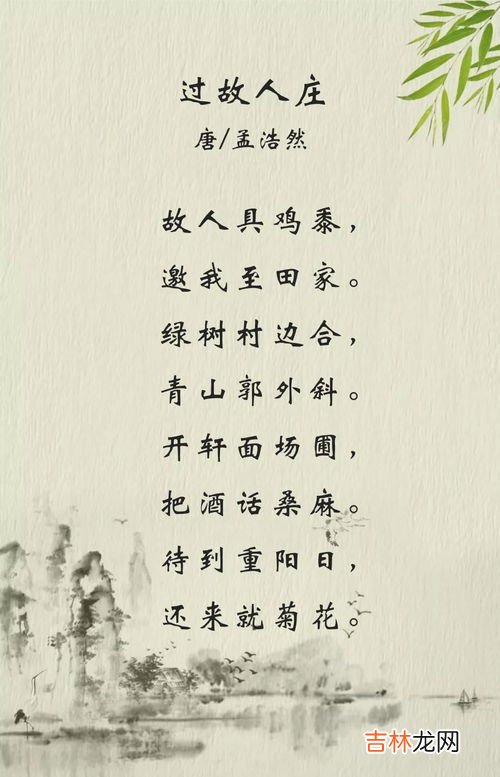 过故人庄
唐/孟浩然
故人具鸡黍，
邀我至田家。
绿树村边合，
青山郭外斜。
开轩面场圃，
把酒话桑麻。
待到重阳日，
还来就菊花。
吉林龙网